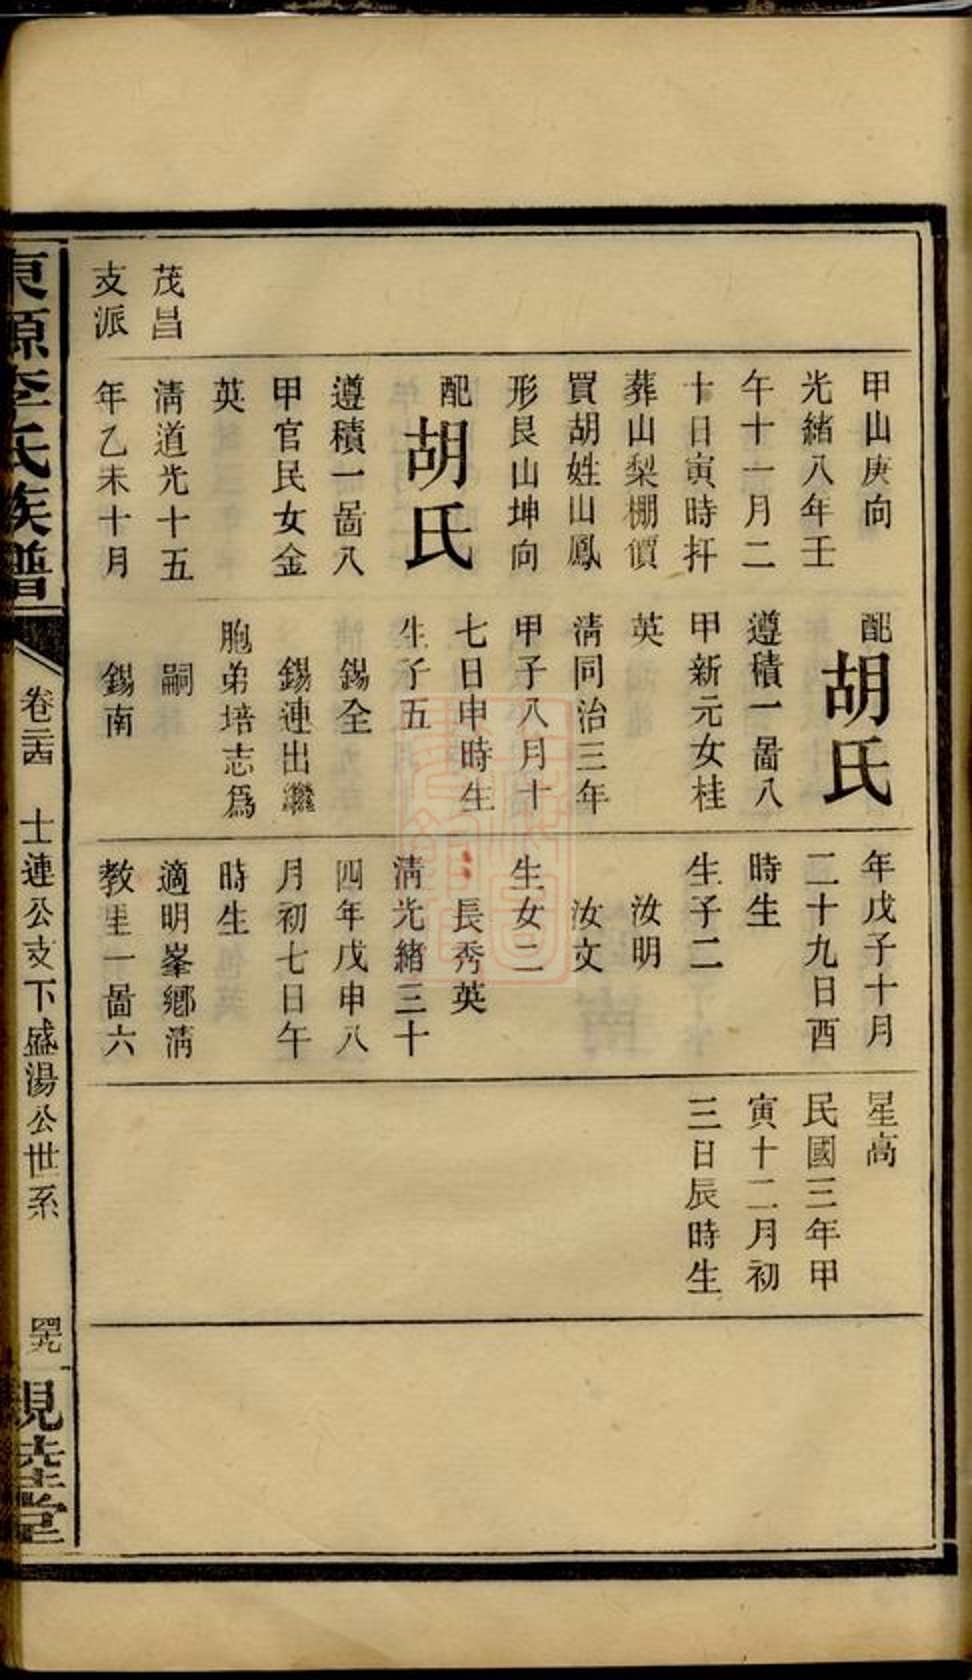 茂昌
支派
甲山庚向
光緒八年壬
午十一月二
十日寅時扞
葬山梨棚價
買胡姓山鳳
形艮山坤向
配胡氏
遵積一啚八
甲官民女金
英
清道光十五
年乙未十月
配胡氏
遵積一啚八
甲新元女桂
英
清同治三年
甲子八月十
七日申時生
生子五
錫全
錫連出繼
胞弟培志為
嗣
錫南
年戊子十月
二十九日酉
時生
生子二
汝明
汝文
生女二
長秀英
清光緒三十
四年戊申八
月初七日午
時生
適明峯鄉清
教里一啚六
星高
民國三年甲
寅十二月初
三日辰時生
東源李氏族譜
卷二四
士連公支下盛湯公世系
四九